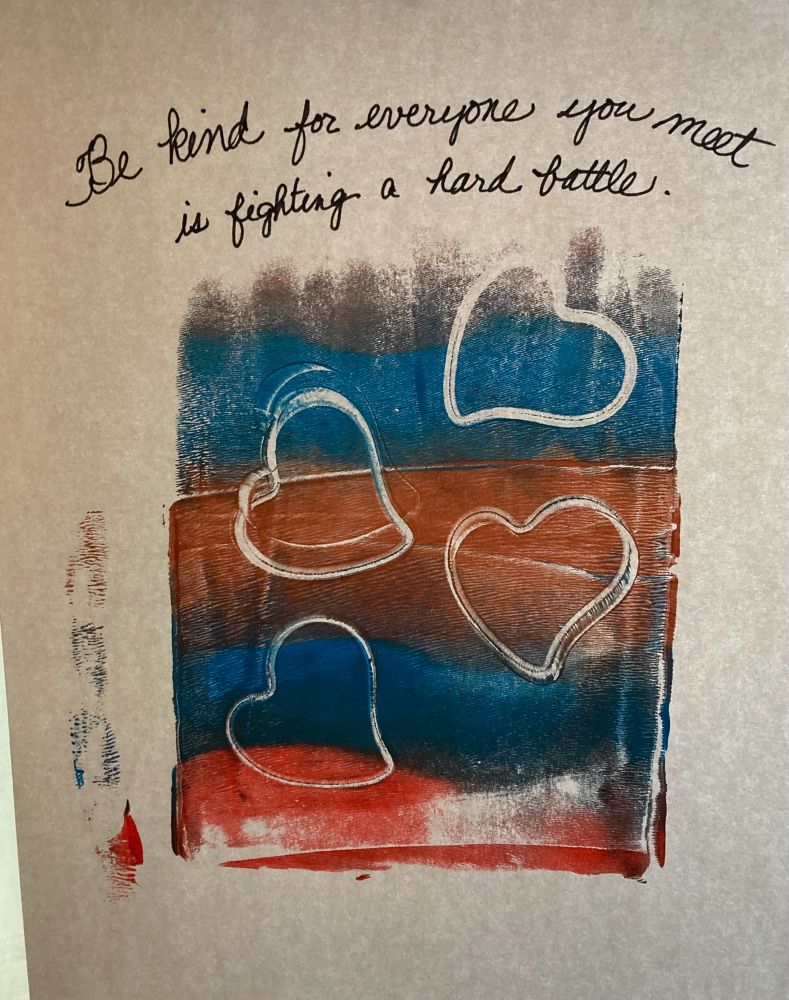 Be kind for everyone you meet
is fighting a hard battle.